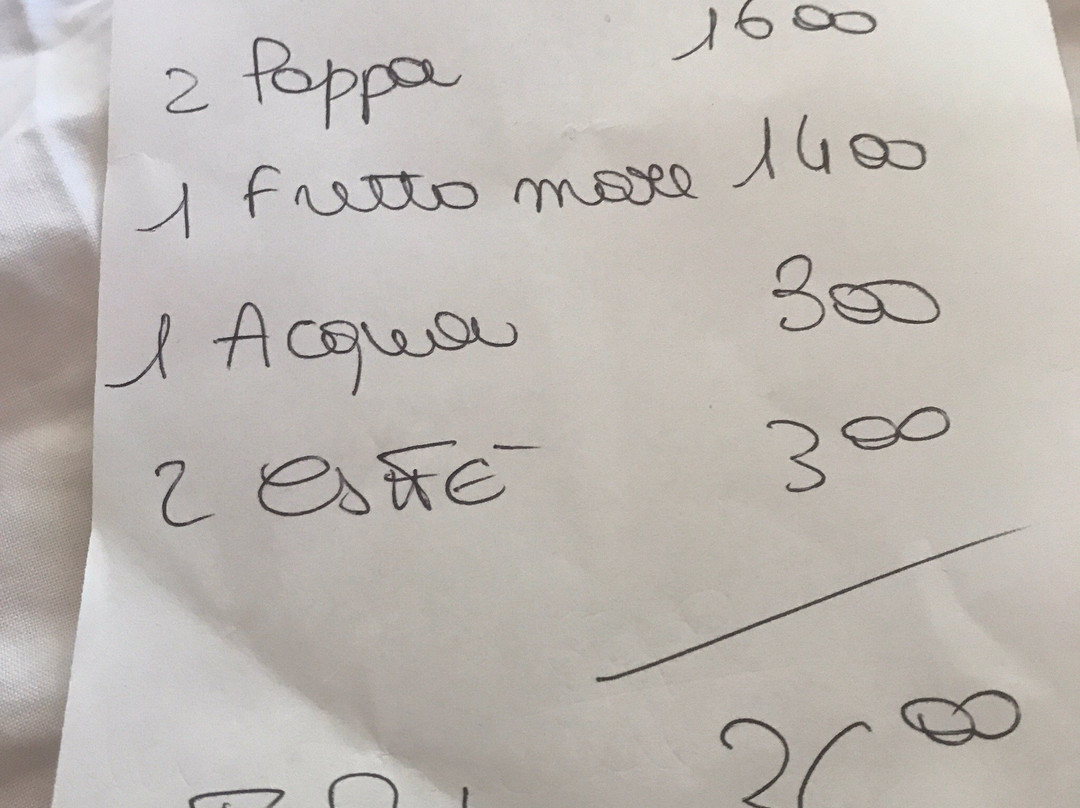 2 Pappa 1600
1 fritto mare 1400
1 Acqua 300
2 300